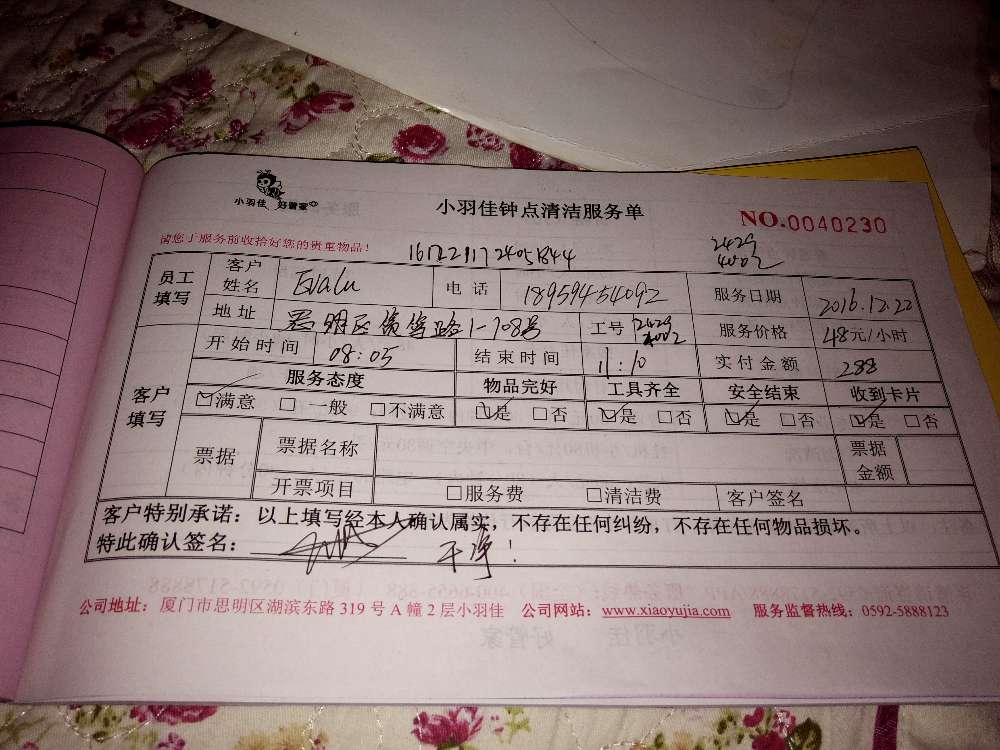 小羽佳 好管家
小羽佳钟点清洁服务单
NO.0040230
请您于服务前收拾好您的贵重物品!
2429
4002
员工填写 客户姓名 Evalu 电话 18959454092 服务日期 2016.12.22
地址 思明区 路1-708号 工号 2429 4002 服务价格 48元/小时
客户填写 开始时间 08:05 结束时间 11:10 实付金额 288
服务态度 物品完好 工具齐全 安全结束 收到卡片
满意 一般 不满意 是 否 是 否 是 否 是 否
票据 票据名称 票据金额
开票项目 服务费 清洁费 客户签名
客户特别承诺:以上填写经本人确认属实,不存在任何纠纷,不存在任何物品损坏。
特此确认签名: 干净!
公司地址:厦门市思明区湖滨东路 319 号 A 幢 2 层小羽佳 公司网站:www.xiaoyujia.com 服务监督热线:0592-5888123